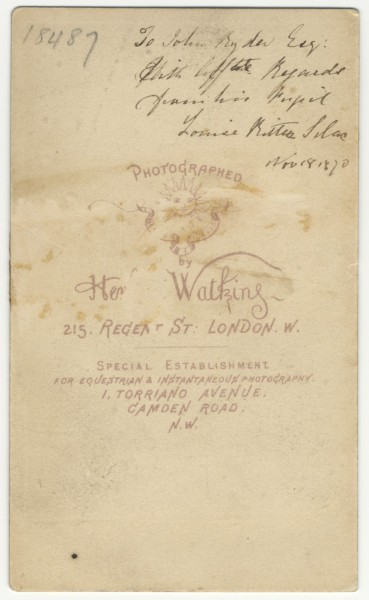 18487
To John Ryder Esq:
With Regards
from his Pupil
Louise
Nov 18 1870
PHOTOGRAPHED
by
Watkins
215. REGENT ST: LONDON. W.
SPECIAL ESTABLISHMENT
FOR EQUESTRIAN & INSTANTANEOUS PHOTOGRAPHY.
1, TORRIANO AVENUE.
CAMDEN ROAD.
N.W.